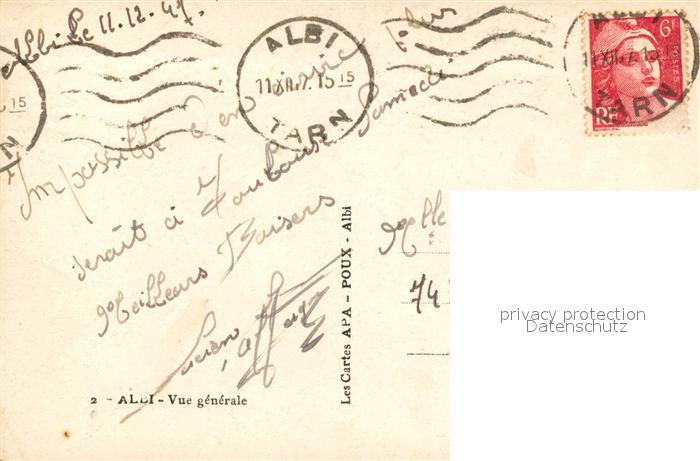 Albi le 11.12.47.
ALBI
11 XII 47 15 15
TARN
6F
POSTES
RF
ALBI
TARN
15
Impossible d'en
serait à Toulouse Samedi
Meilleurs Baisers
Lucien
Melle
74
Les Cartes APA - POUX - Albi
2 - ALBI - Vue générale
privacy protection
Datenschutz